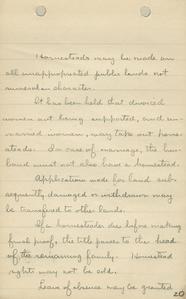 Homesteads may be made on
all unappropriated public lands not
mineral in character.
It has been held that divorced
women not being supported, and un-
married women, may take out home-
steads. In case of marriage, the hus-
band must not also have a homestead.
Applications made for land sub-
sequently damaged or withdrawn may
be transferred to other lands.
If a homesteader dies before making
final proof, the title passes to the head
of the remaining family. Homestead
rights may not be sold.
Leave of absence may be granted
20